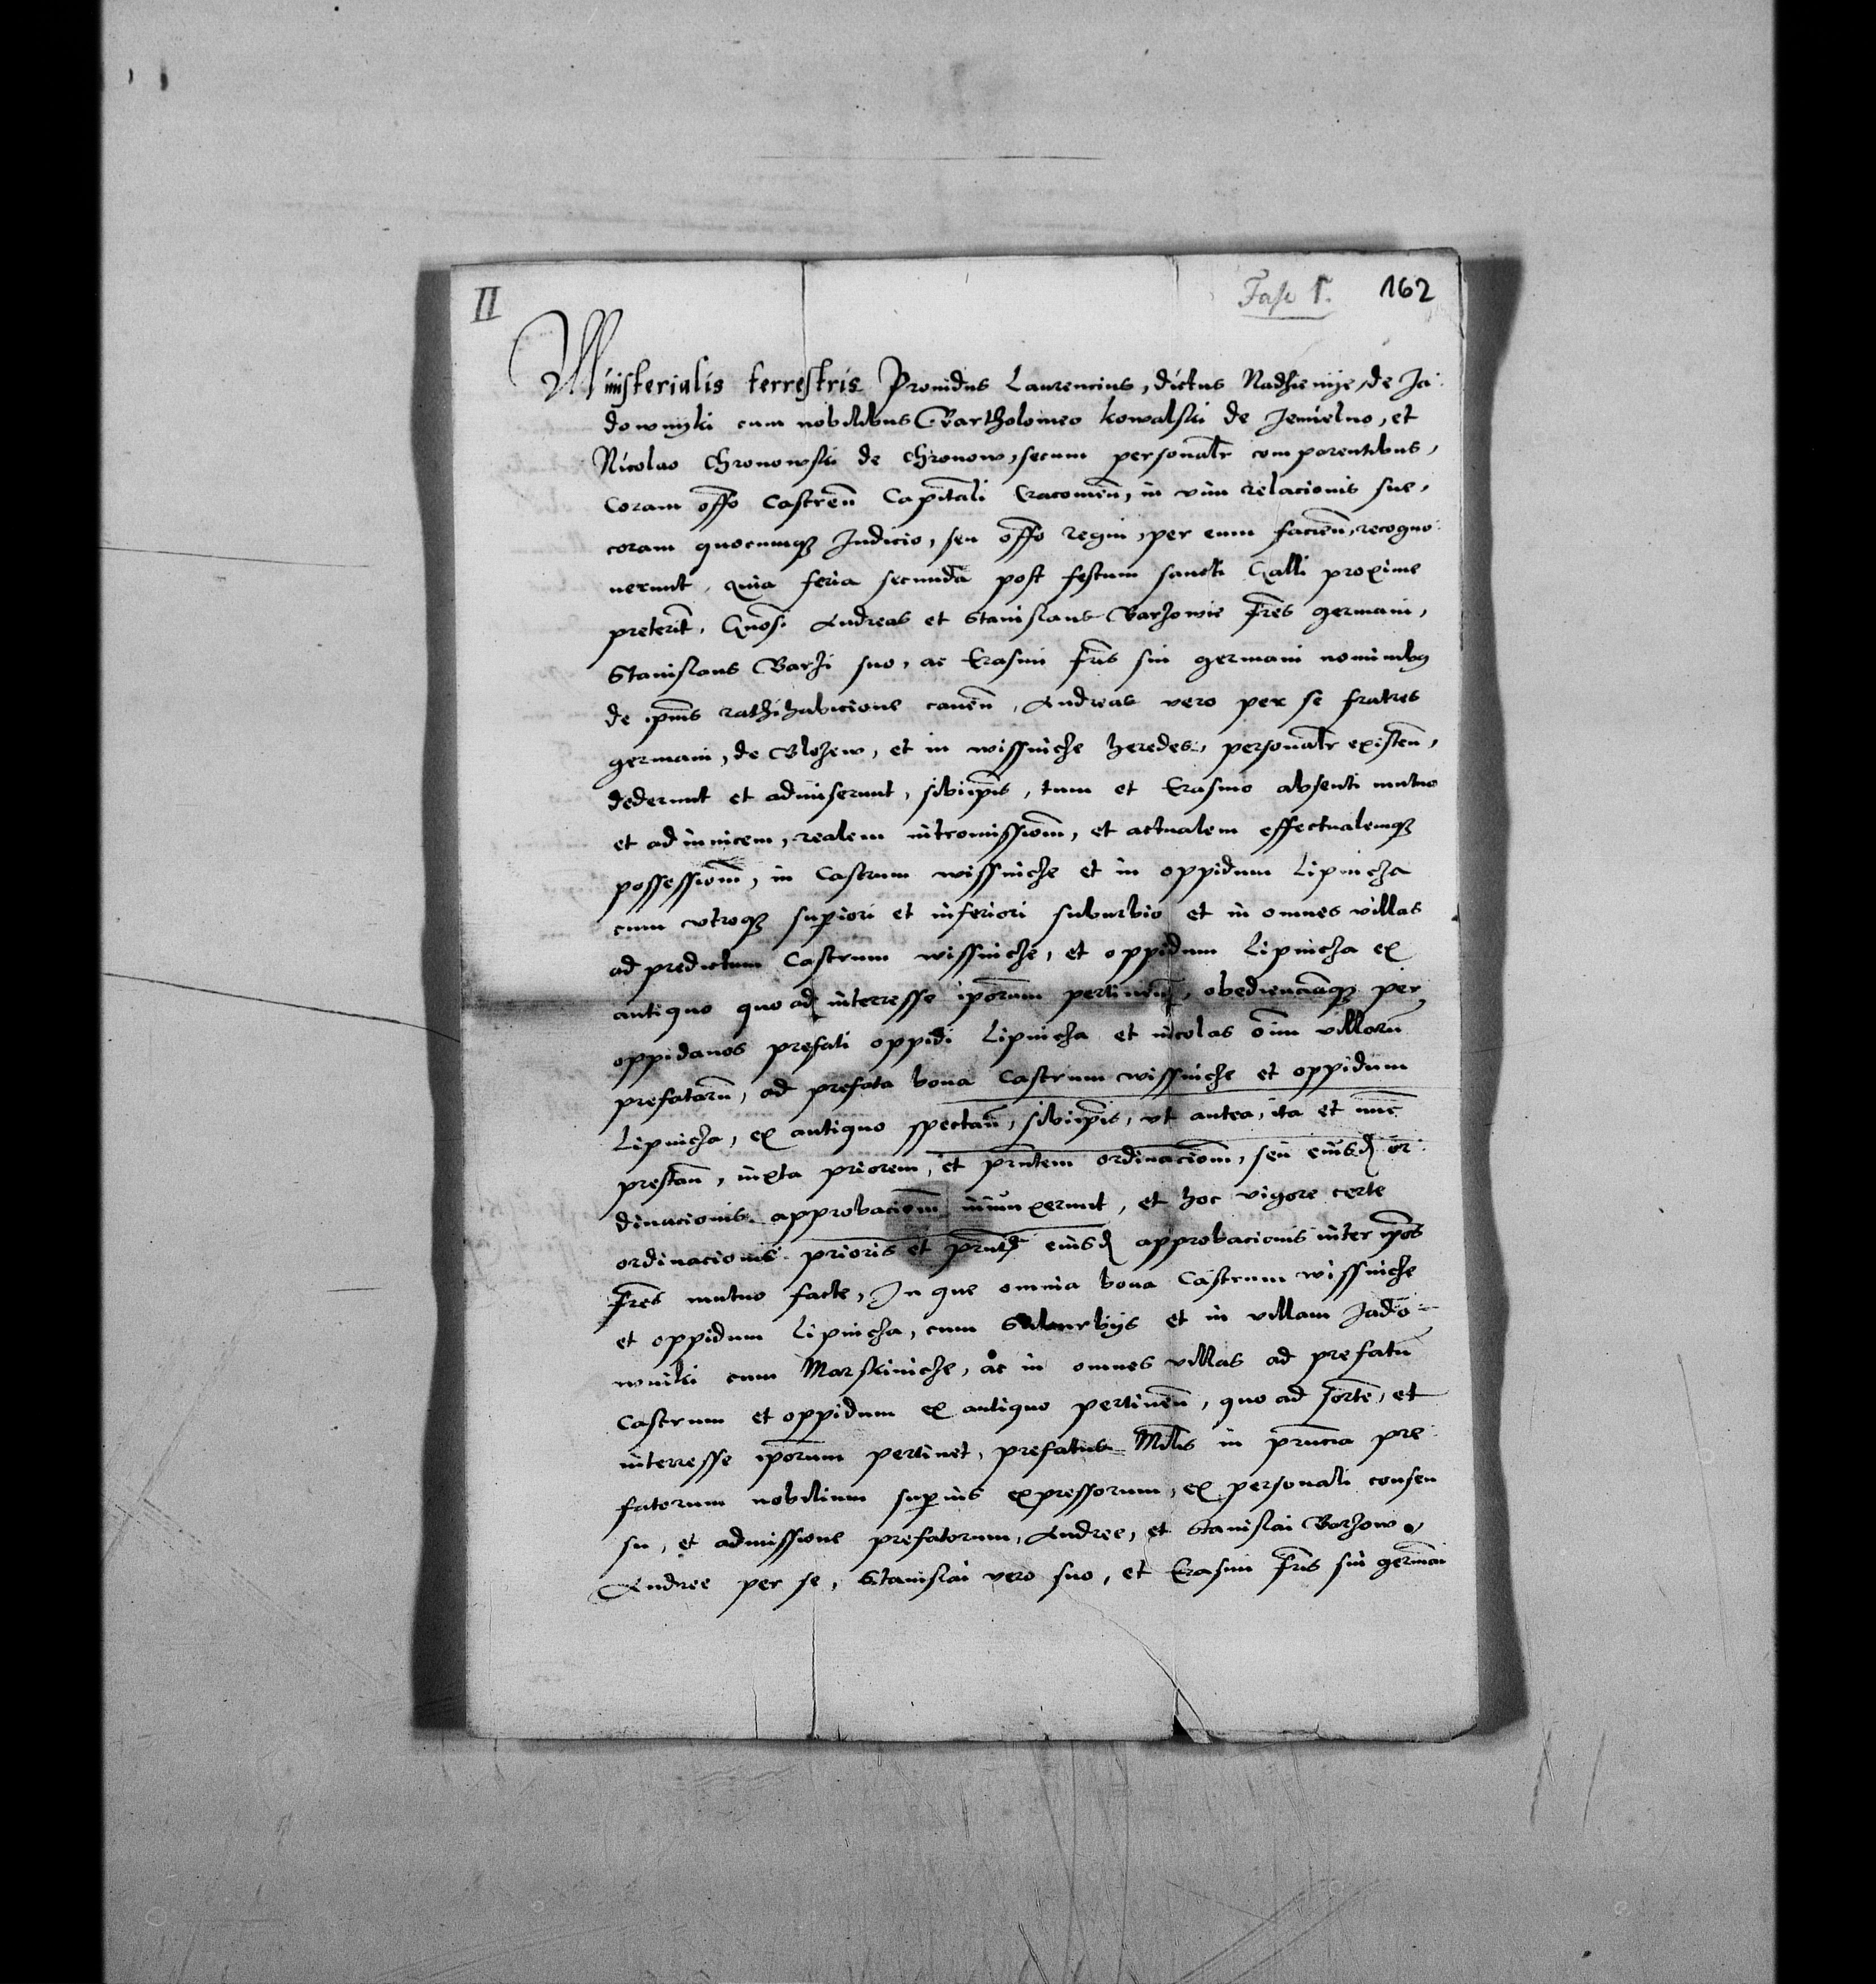 II
Fasc 1. 162
Ministerialis terrestris Prouidus Laurencius, dictus Nadzieniye, de Ja:
downyki cum nobilibus Bartholomeo kowalski de Jemielno, et
Nicolao Chronowski de Chronow, secum personalr comparentibus,
Coram offo Castren̄ Capitali Cracouien̄, in vim relacionis sue,
coram quocumqȝ Judicio, seu offo regni, per eum facien̄, recogno:
uerunt. Quia feria secunda post festum sancti Galli proxime
preterit̄, Gn̄osi Andreas et Stanislaus Barzowie frēs germani,
Stanislaus Barzi suo, ac Erasmi fr̄is sui germani nominibꝰ
de ip̄ius rathihabicione cauen̄, Andreas vero per se fratres
germani, de Blozew, et in wissniche heredes, personalr existen̄,
dederunt et admiserunt, sibiip̄is, tum et Erasmo absenti mutuo
et adinuicem, realem intromissiom̄, et actualem effectualemqȝ
possessiom̄, in Castrum wissniche et in oppidum Lipnicza
cum vtroqȝ supiori et inferiori suburbio et in omnes villas
ad predictum Castrum wissniche, et oppidum Lipnicza ex
antiquo quo ad interresse ip̄orum pertinen̄, obedienciāqȝ per
oppidanos prefati oppidi Lipnicza et incolas oīm villarū
prefatarū, ad prefata bona Castrum wissniche et oppidum
Lipnicza, ex antiquo spectan̄, sibiip̄is, vt antea, ita et nūc
prestan̄, iuxta priorem, et pr̄ntem ordinaciom̄, seu eiusd̄ or:
dinacionis approbaciom̄ iniunxerunt, et hoc vigore certe
ordinacionis prioris et pr̄ntis eiusd̄ approbacionis inter ip̄os
frēs mutuo facte, In que omnia bona Castrum wissniche
et oppidum Lipnicza, cum Suburbijs et in villam Jado:
wniki cum Marskiniche, ac in omnes villas ad prefatū
Castrum et oppidum ex antiquo pertinen̄, quo ad sortē, et
interresse ip̄orum pertinet, prefatus Mīlis in pr̄ncia pre
fatorum nobilium supius expressorum, ex personali consen
su, et admissione prefatorum, Andree, et Stanislai Barzow,
Andree per se, Stanislai vero suo, et Erasmi fr̄is sui germāi